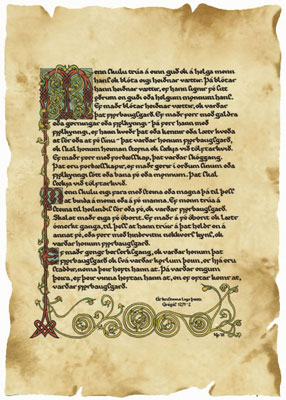 Menn ſkulu trúa á enn guð ok á helga menn
hanſ, ok blóta eigi heiðnar vættir. Þá blótar
hann heiðnar vættir, er hann ſignar fé ſitt
ǫðrum en guði eða helgum mǫnnum hanſ.
Ef maðr blótar heiðnar vættir, ok varðar
þat fjǫrbaugſgarð. Ef maðr ferr með galdra
eða gørningar eða fjǫlkyngi, þá ferr hann með
fjǫlkyngi, ef hann kveðr þat eða kennir eða lætr kveða
at ſér eða at fé ſínu - þat varðar honum fjǫrbaugſgarð,
ok ſkal honum heiman ſtefna ok ſœkja við tólftarkvið.
Ef maðr ferr með fordæðuſkap, þat varðar ſkóggang.
Þat eru fordæðuſkapir, ef maðr gerir í orðum ſínum eða
fjǫlkyngi ſótt eða bana fé eða mǫnnum. Þat ſkal
ſœkja við tólftarkvið.
Menn ſkulu eigi fara með ſteina eða magna þá til þeſſ
at binda á menn eða á fé manna. Ef menn trúa á
ſteina til heilindiſ ſér eða fé, ok varðar fjǫrbaugſgarð.
Skalat maðr eiga fé óborit. Ef maðr á fé óborit ok lætr
ómerkt ganga, til þeſſ at hann trúir á þat heldr en á
annat fé, eða ferr með hindrvitni nekkverſ kynſ, ok
varðar honum fjǫrbaugſgarð.
Ef maðr gengr berſerkſgang, ok varðar honum þat
fjǫrbaugſgarð ok ſvá varðar kǫrlum þeim, er hjá eru
ſtaddir, nema þeir hepti hann at. Þá varðar engum
þeira, ef þeir vinna heptan hann at, en ef optar kømr at,
varðar fjǫrbaugſgarð.